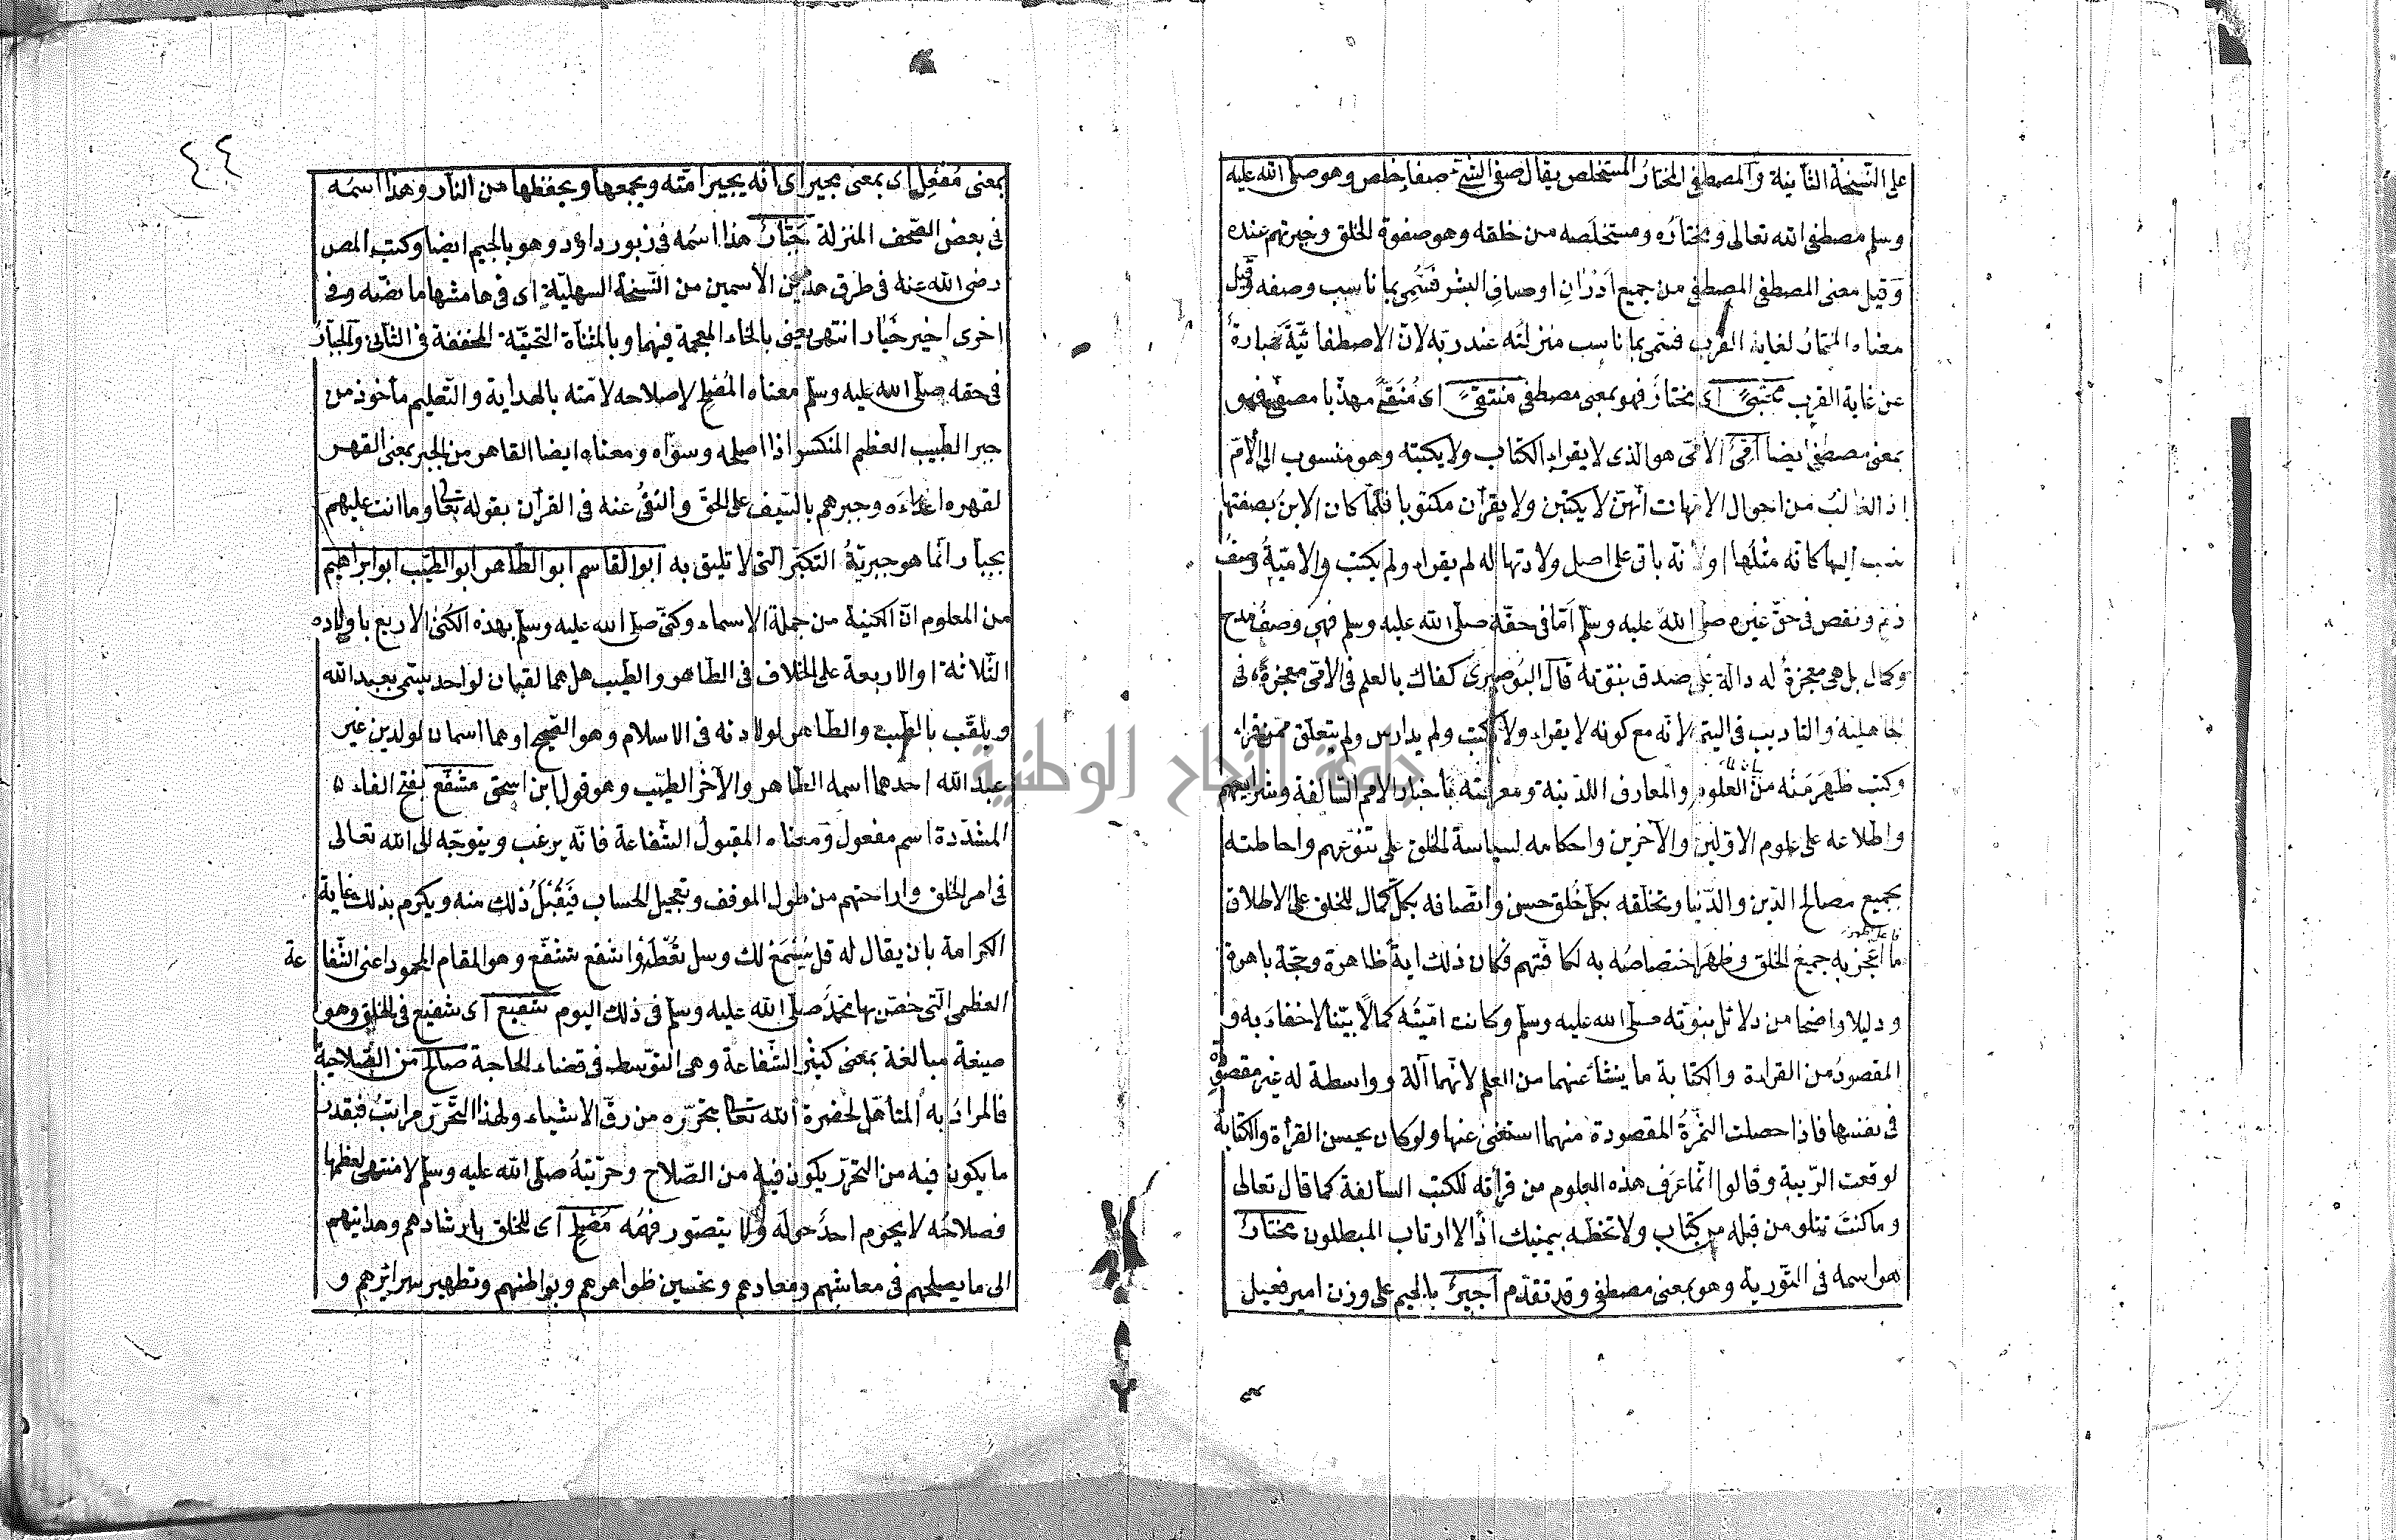 على النسخة الثانية والمصطفى المختار المستخلص يقال صفى الشئ صفا خلص وهو صلى الله عليه
وسلم مصطفى الله تعالى ومختاره ومستخلصه من خلقه وهو صفوة الخلق وخيرتهم عنده
وقيل معنى المصطفى المصطفى من جميع ادران اوصاف البشر فسمى بما ناسب وصفه وقيل
معناه المختار لغاية القرب فسمى بما ناسب منزلته عند ربه لان الاصطفائية عبارة
عن غاية القرب مجتبى اى مختار فهو بمعنى مصطفى منتقى اى منقى مهذبا مصفى فهو
بمعنى مصطفى ايضا امى الأمى هو الذى لا يقراء الكتاب ولا يكتبه وهو منسوب الى الأم
اذ الغالب من احوال الامهات انهن لا يكتبن ولا يقرأن مكتوبا فلما كان الابن بصفتها
نسب اليها كانه مثلها او لانه باق على اصل ولادتها له لم يقراء ولم يكتب والامية وصف
ذم ونقص فى حق غيره صلى الله عليه وسلم اما فى حقه صلى الله عليه وسلم فهى وصف مدح
وكمال بل هى معجزة له دالة على صدق بنوته قال البوصيرى كفاك بالعلم فى الامى معجزة فى
الجاهلية والتاديب فى اليتم لانه مع كونه لا يقراء ولا يكتب ولم يدارس ولم يتعلق ممن قراء
وكتب ظهر منه من العلوم والمعارف اللدنية ومعرفته باخبار الامم السالفة وشرايعهم
واطلاعه على علوم الاولين والآخرين واحكامه لسياسة الخلق على تنوعهم واحاطته
بجميع مصالح الدين والدنيا وتخلقه بكل خلق حسن واتصافه بكل كمال للخلق على الاطلاق
ما اعجز به جميع الخلق وظهر اختصاصه به لكافتهم فكان ذلك اية ظاهرة وحجة باهرة
ودليلا واضحا من دلائل بنوته صلى الله عليه وسلم وكانت اميته كمالا بينا لا خفاء به و
المقصود من القراءة والكتابة ما ينشأ عنهما من العلم لانهما آلة وواسطة له غير مقصو
فى نفسها فاذا حصلت الثمرة المقصودة منهما استغنى عنها ولو كان يحسن القرأة والكتابة
لوقعت الريبة وقالوا انما عرف هذه العلوم من قرأته للكتب السالفة كما قال تعالى
وما كنت تتلو من قبله من كتاب ولا تخطه بيمينك اذا لا ارتاب المبطلون مختار
هو اسمه فى التورية وهو بمعنى مصطفى وقد تقدم اجير بالجيم على وزن امير فعيل
٤٤
بمعنى مفعل اى بمعنى مجير اى انه يجير امته ويجمعها ويحفظها من النار وهذا اسمه
فى بعض الصحف المنزلة جبار هذا اسمه فى زبور داؤد وهو بالجيم ايضا وكتب المص
رضى الله عنه فى طرق هذين الأسمين من النسخة السهلية اى فى هامشها ما نصه وفى
اخرى اخير خيار انتهى يعنى بالخاء المعجمة فيهما وبالمثناة التحتية المخففة فى الثانى والجبار
فى حقه صلى الله عليه وسلم معناه المصلح لإصلاحه لامته بالهداية والتعليم مأخوذ من
جبر الطبيب العظم المنكسر اذا اصلحه وسواه ومعناه ايضا القاهر من الجبر بمعنى القهر
لقهره اعداءه وجبرهم بالسيف على الحق والنفى عنه فى القرأن بقوله تعا وما انت عليهم
بجبار انما هو جبرية التكبر التى لا تليق به ابو القاسم ابو الطاهر ابو الطيب ابو ابراهيم
من المعلوم ان الكنية من جملة الاسماء وكنى صلى الله عليه وسلم بهذه الكنى الاربع باولاده
الثلاثة او الاربعة على الخلاف فى الطاهر والطيب هل هما لقبان لواحد يسمى بعبد الله
ويلقب بالطيب والطاهر لولادته فى الاسلام وهو الصحيح او هما اسمان لولدين غير
عبد الله احدهما اسمه الطاهر والآخر الطيب وهو قول ابن اسحق مشفع بفتح الفاء
المشددة اسم مفعول ومعناه المقبول الشفاعة فانه يرغب ويتوجه الى الله تعالى
فى امر الخلق واراحتهم من طول الموقف وتعجيل الحساب فيقبل ذلك منه ويكرم بذلك غاية
الكرامة بان يقال له قل يسمع لك وسل تعطه واشفع تشفع وهو المقام المحمود اعنى الشفاعة
العظمى التى خص بها محمد صلى الله عليه وسلم فى ذلك اليوم شفيع اى شفيع فى الخلق وهو
صيغة مبالغة بمعنى كثير الشفاعة وهى التوسط فى قضاء الحاجة صالح من الصلاحية
فالمراد به المتأهل لحضرة الله تعا بتحرره من رق الاشياء ولهذا التحرر مراتب فبقدر
ما يكون فيه من التحرر يكون فيه من الصلاح وحريته صلى الله عليه وسلم لا منتهى لعظمها
فصلاحه لا يحوم احد حوله ولا يتصور فهمه مصلح اى للخلق بارشادهم وهدايتهم
الى ما يصلحهم فى معاشهم ومعادهم وتحسين ظواهرهم وبواطنهم وتطهير سرائرهم و
جامعة النجاح الوطنية